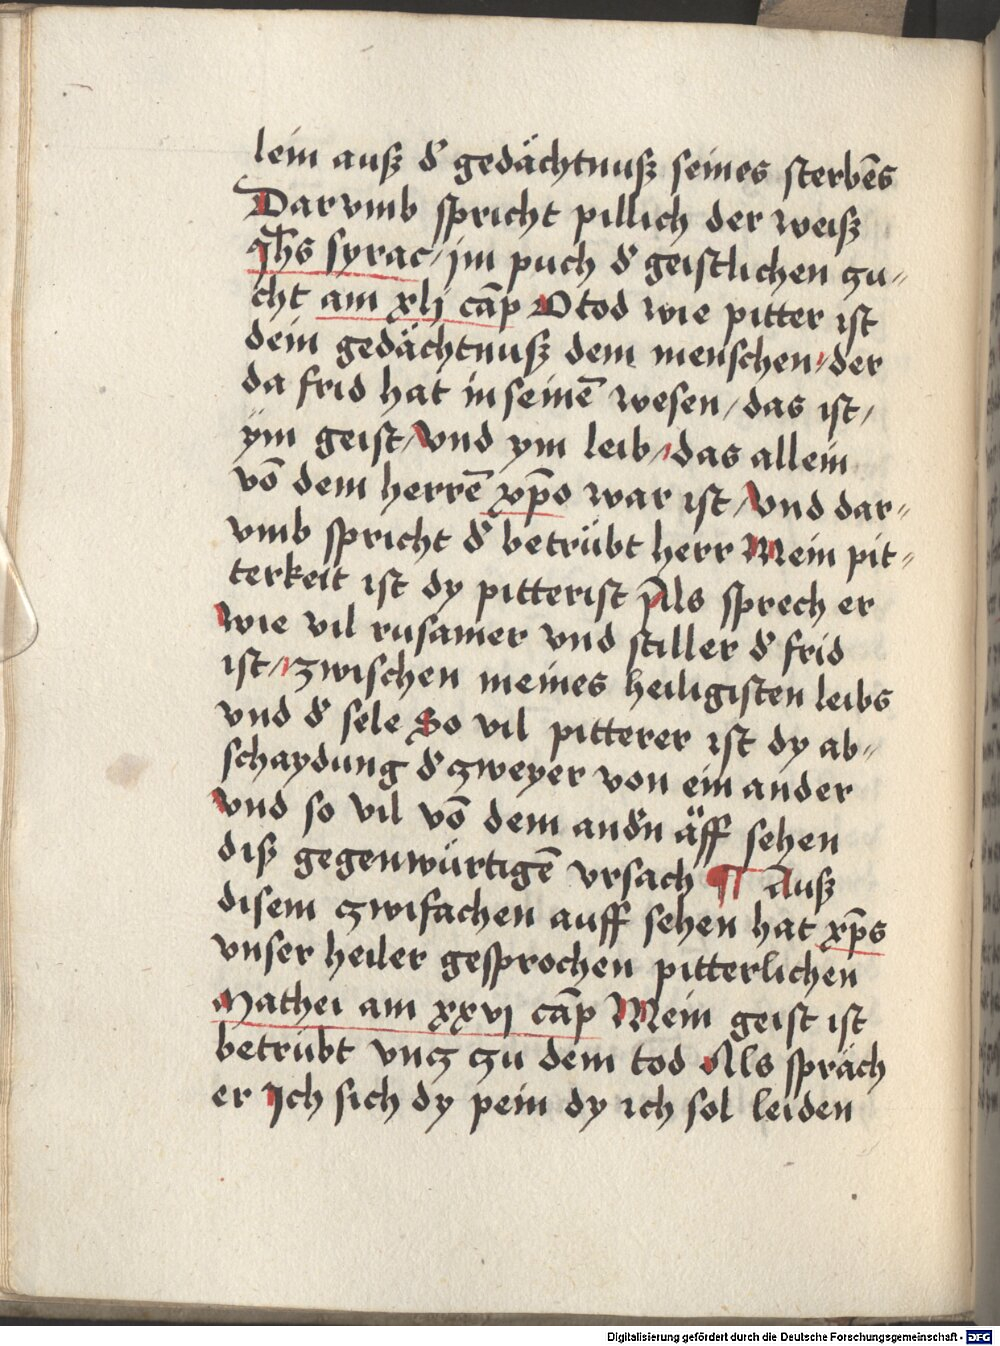 lein auß d' gedächtnuß seines sterbēs
Darvmb spricht pillich der weiß
Jh̄s syrac / jm puch d' geistlichen zu=
cht am xlj cāp O tod wie pitter ist
dein gedächtnuß dem menschen / der
da frid hat in seinē wesen / das ist /
ÿm geist / Vnd ym leib / das allein
vō dem herrē xp̄o war ist / Vnd dar=
vmb spricht d' betrübt herr Mein pit=
terkeit ist dy pitterist Als sprech er
Wie vil rusamer vnd stiller d' frid
ist / zwischen meines heiligisten leibs
vnd d' sele So vil pitterer ist dy ab=
schaydung d' zweyer von ein ander
Vnd so vil vō dem and'n äff sehen
diß gegenwürtigē vrsach ¶ Auß
disem zwifachen auff sehen hat xp̄s
vnser heiler gesprochen pitterlichen
Mathei am xxvj cāp Mein geist ist
betrübt vncz zu dem tod Als spräch
er Ich sich dy pein dy ich sol leiden
Digitalisierung gefördert durch die Deutsche Forschungsgemeinschaft - DFG